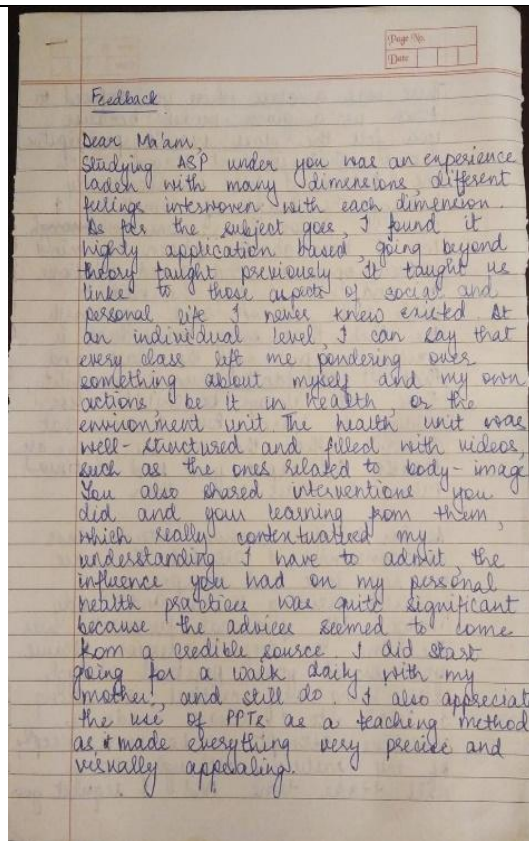 Page No.
Date
Feedback
Dear Ma'am,
Studying ASP under you was an experience
laden with many dimensions, different
feelings interwoven with each dimension.
As far the subject goes, I found it
highly application based, going beyond
theory taught previously. It taught us
links to those aspects of social and
personal life I never knew existed. At
an individual level, I can say that
every class left me pondering over
something about myself and my own
actions, be it in health, or the
environment unit. The health unit was
well-structured and filled with videos,
such as the ones related to body-image.
You also shared interventions you
did and your learning from them,
which really contextualized my
understanding. I have to admit, the
influence you had on my personal
health practices was quite significant
because the advices seemed to come
from a credible source. I did start
going for a walk daily with my
mother, and still do. I also appreciat
the use of PPTs as a teaching method
as it made everything very precise and
visually appealing.